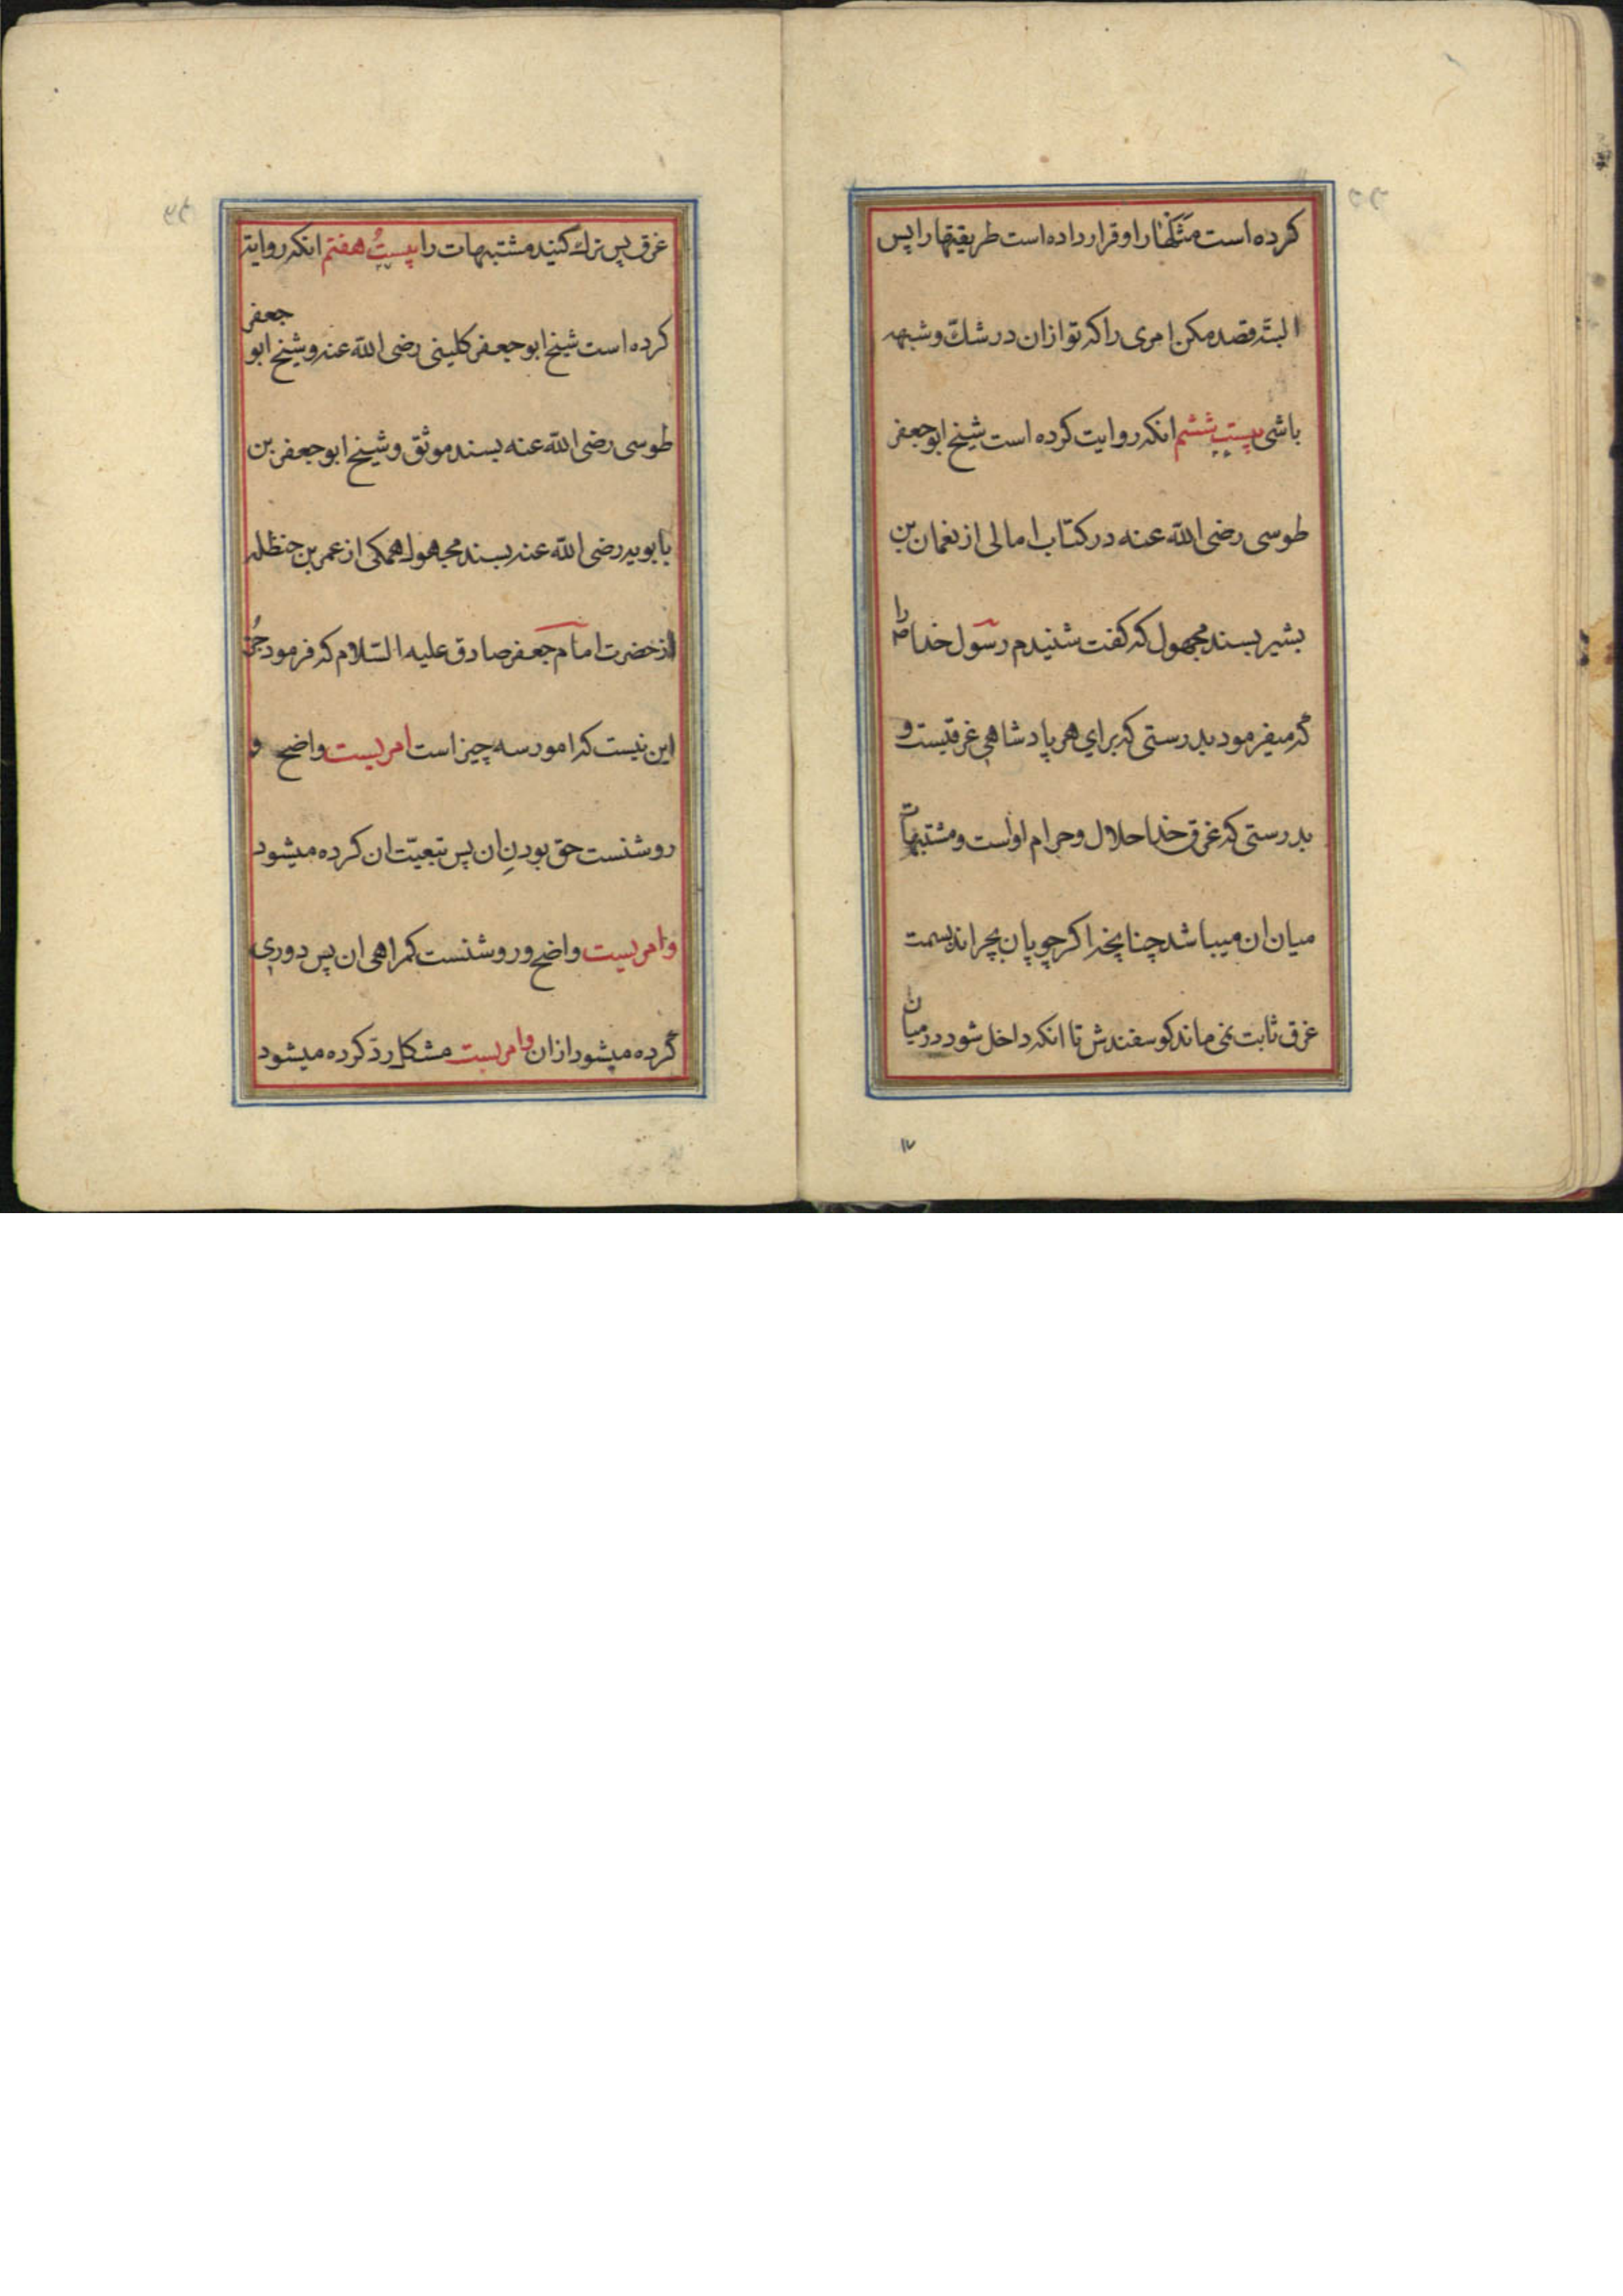 کرده است مثلها را و قرار داده است طریقتها را پس
البتّه قصد مکن امری را که تو ازان در شکّ و شبهه
باشی بیست ششم انکه روایت کرده است شیخ ابو جعفر
طوسی رضی اللّه عنه در کتاب امالی از نعمان بن
بشیر بسند مجهول که کفت شنیدم رسول خدا ص را
که میفرمود بدرستی که برای هر پادشاهی غرقیست و
بدرستی که غرق خدا حلال و حرام اوست و مشتبهات
میان ان میباشد چنانچه اکر چوپان بچراند بسمت
غرق ثابت نمی ماند کوسفندش تا انکه داخل شود در میان
۱۷
غرق پس ترک کنید مشتبهات را بیست هفتم انکه روایت
کرده است شیخ ابو جعفر کلینی رضی اللّه عنه و شیخ ابو جعفر
طوسی رضی اللّه عنه بسند موثق و شیخ ابو جعفر بن
بابویه رضی اللّه عنه بسند مجهول همکی از عمر بن حنظله
از حضرت امام جعفر صادق علیه السّلام که فرمود جز
این نیست که امور سه چیز است امریست واضح و
روشنست حق بودنِ ان پس تبعیّت ان کرده میشود
وامریست واضح و روشنست کمراهی ان پس دوری
کرده میشود ازان وامریست مشکل ردّ کرده میشود